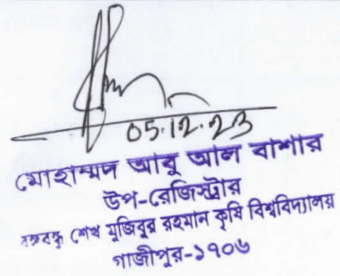 05.12.23
মোহাম্মদ আবু আল বাশার
উপ-রেজিস্ট্রার
বঙ্গবন্ধু শেখ মুজিবুর রহমান কৃষি বিশ্ববিদ্যালয়
গাজীপুর-১৭০৬